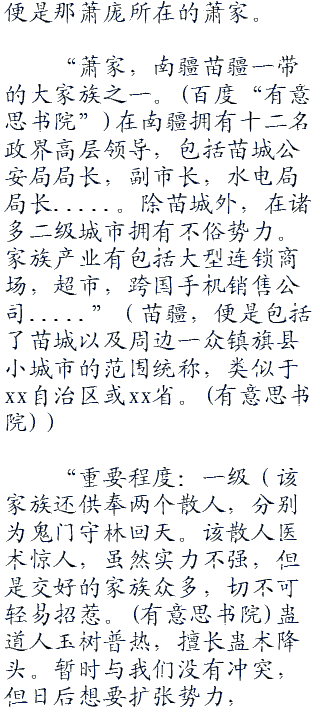 便是那萧庞所在的萧家。
“萧家，南疆苗疆一带
的大家族之一。(百度“有意
思书院”)在南疆拥有十二名
政界高层领导，包括苗城公
安局局长，副市长，水电局
局长.....。除苗城外，在诸
多二级城市拥有不俗势力。
家族产业有包括大型连锁商
场，超市，跨国手机销售公
司.....”（苗疆，便是包括
了苗城以及周边一众镇旗县
小城市的范围统称，类似于
xx自治区或xx省。(有意思书
院)）
“重要程度：一级（该
家族还供奉两个散人，分别
为鬼门守林回天。该散人医
术惊人，虽然实力不强，但
是交好的家族众多，切不可
轻易招惹。(有意思书院)蛊
道人玉树普热，擅长蛊术降
头。暂时与我们没有冲突，
但日后想要扩张势力，